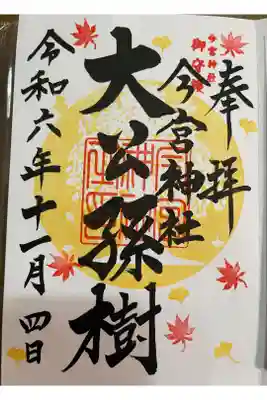 奉拝
今宮神社
大公孫樹
令和六年十一月四日
今宮神社